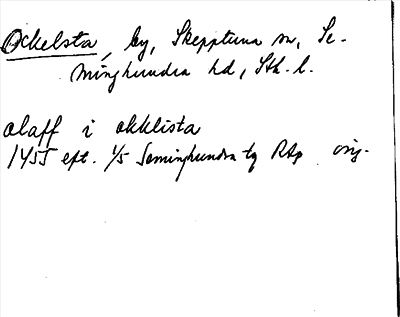 Ockelsta, by, Skepptuna sn, Se-
minghundra hd, Sth. l.
olaff i okklista
1455 eft. 1/5 Seminghundra tg RAp orig.